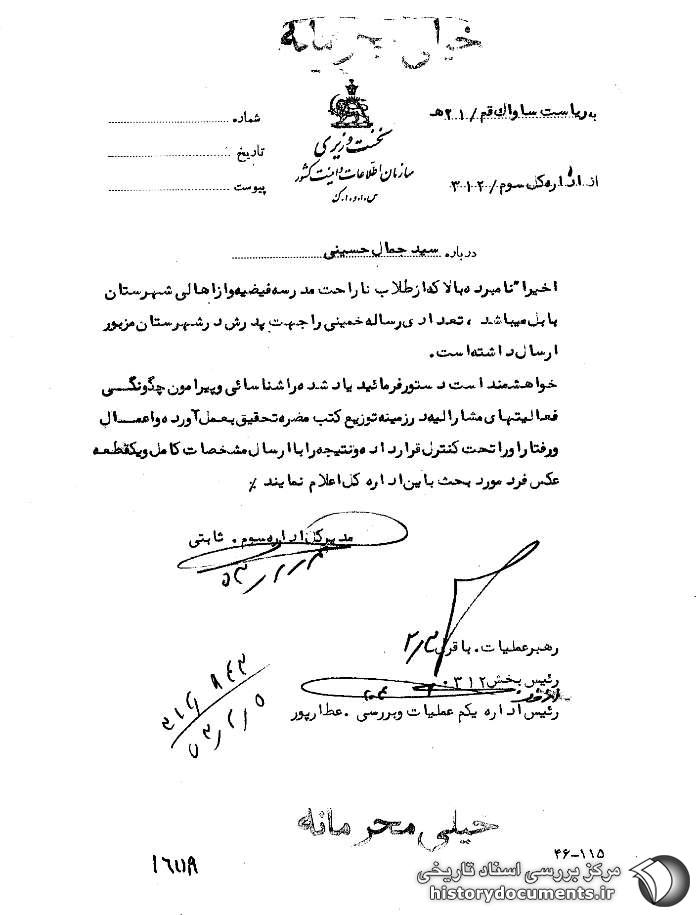 خیلی محرمانه
به ریاست ساواک قم / ۲۱ هـ
شماره
نخست وزیری
تاریخ
سازمان اطلاعات و امنیت کشور
از اداره کل سوم / ۳۱۲
پیوست
س.ا.و.ا.ک
درباره سید جمال حسینی
اخیرا" نامبرده بالا که از طلاب ناراحت مدرسه فیضیه و از اهالی شهرستان
بابل میباشد ، تعدادی رساله خمینی را جهت پدرش در شهرستان مزبور
ارسال داشته است.
خواهشمند است دستور فرمائید یاد شده را شناسائی و پیرامون چگونگی
فعالیتهای مشارالیه در زمینه توزیع کتب مضره تحقیق بعمل آورده و اعمال
و رفتار او را تحت کنترل قرار داده و نتیجه را با ارسال مشخصات کامل و یکقطعه
عکس فرد مورد بحث باین اداره کل اعلام نمایند ٪
مدیر کل اداره سوم . ثابتی
۵۳/۲/۳
رهبر عملیات . باقری ۲/۳
رئیس بخش ۳۱۲
رئیس اداره یکم عملیات و بررسی . عطارپور
۵۳/۲/۵
خیلی محرمانه
۴۶-۱۱۵
مرکز بررسی اسناد تاریخی
historydocuments.ir